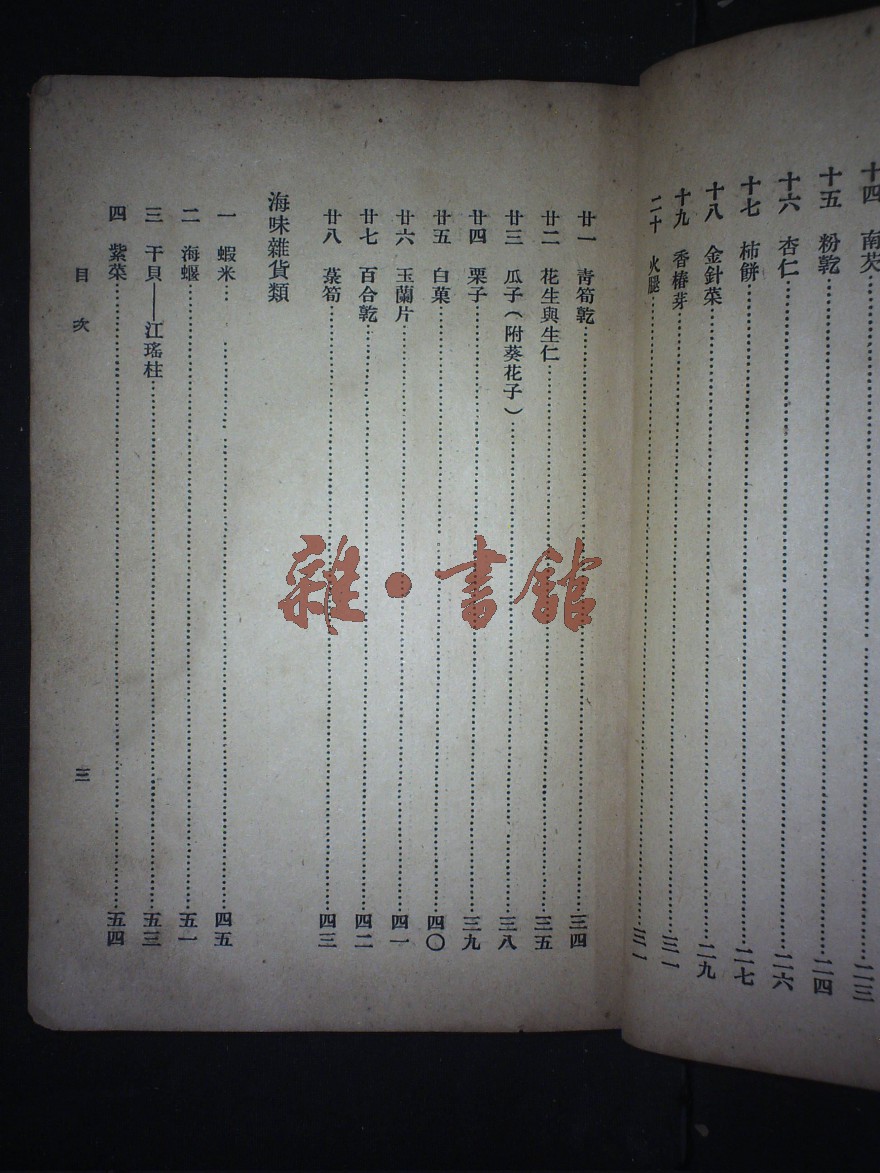 十四　南芡……二三
十五　粉乾……二四
十六　杏仁……二六
十七　柿餅……二七
十八　金針菜……二九
十九　香椿芽……三一
二十　火腿……三一
廿一　靑筍乾……三四
廿二　花生與生仁……三五
廿三　瓜子（附葵花子）……三八
廿四　栗子……三九
廿五　白菓……四〇
廿六　玉蘭片……四一
廿七　百合乾……四二
廿八　菉筍……四三
海味雜貨類
一　蝦米……四五
二　海蝘……五一
三　干貝——江瑤柱……五三
四　紫菜……五四
目次
三
雜·書館